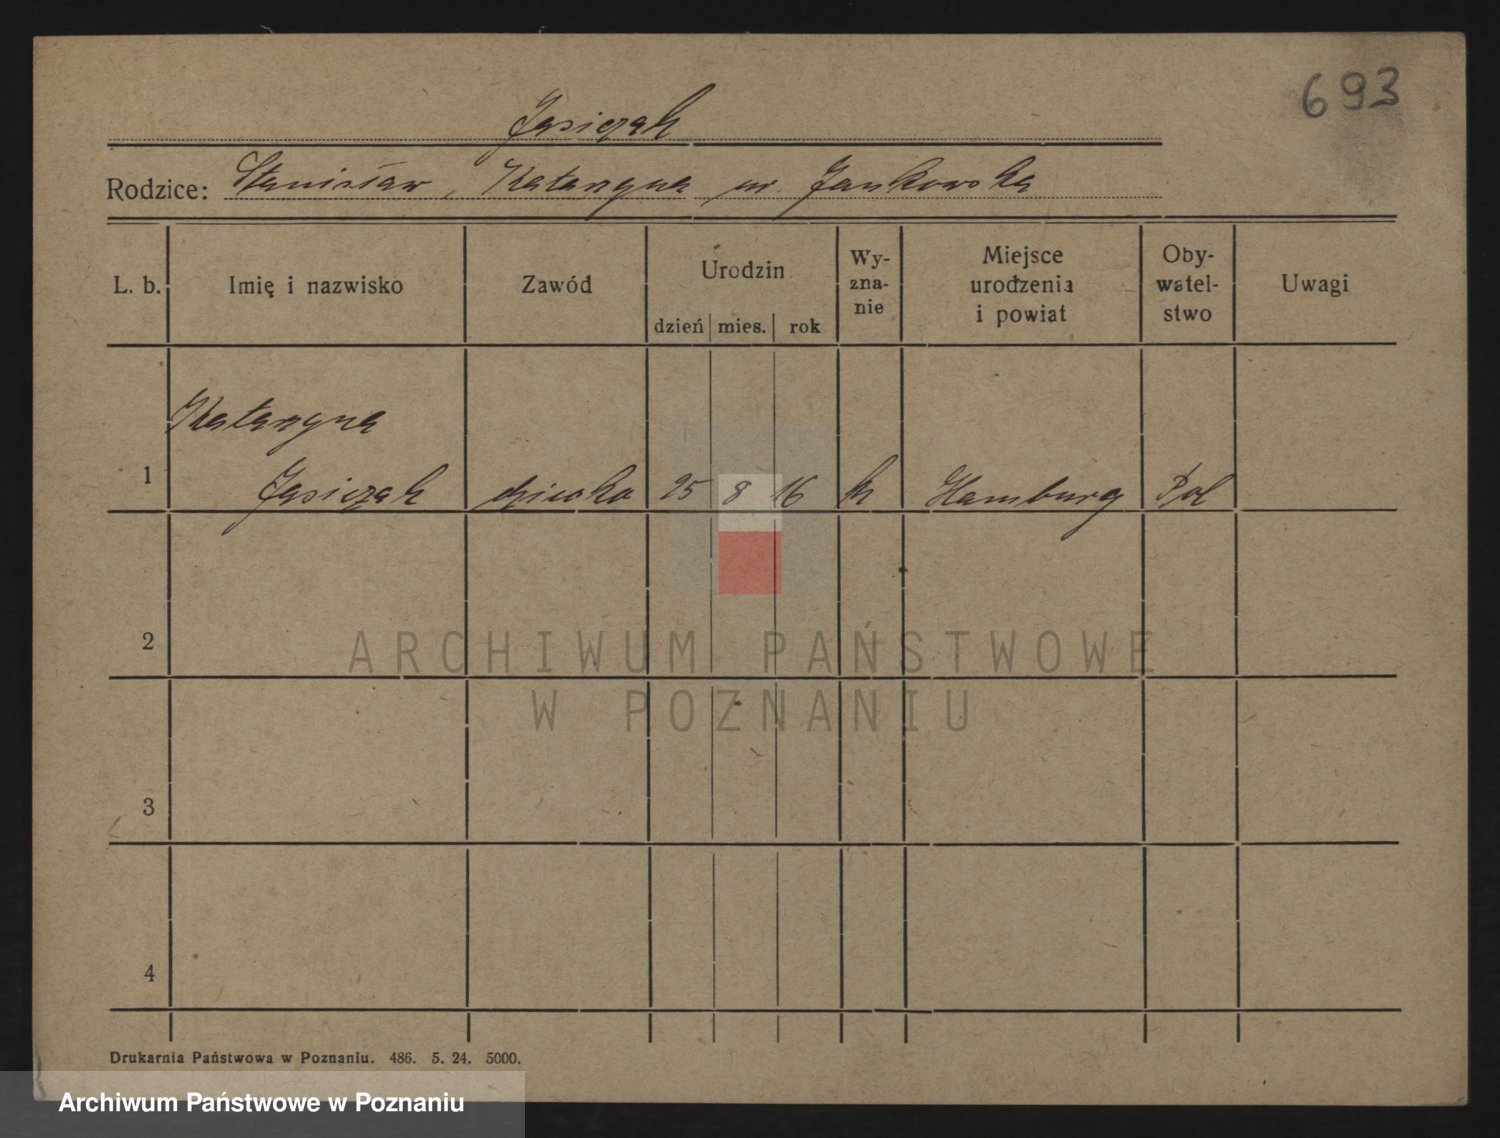 693
Jasiczak
Rodzice: Stanisław, Katarzyna ur. Jankowska
L. b. Imię i nazwisko Zawód Urodzin dzień mies. rok Wy-zna-nie Miejsce urodzenia i powiat Oby-watel-stwo Uwagi
Katarzyna
1 Jasiczak dziecko 25 8 16 k Hamburg Pol
2
ARCHIWUM PAŃSTWOWE
W POZNANIU
3
4
Drukarnia Państwowa w Poznaniu. 486. 5. 24. 5000.
Archiwum Państwowe w Poznaniu